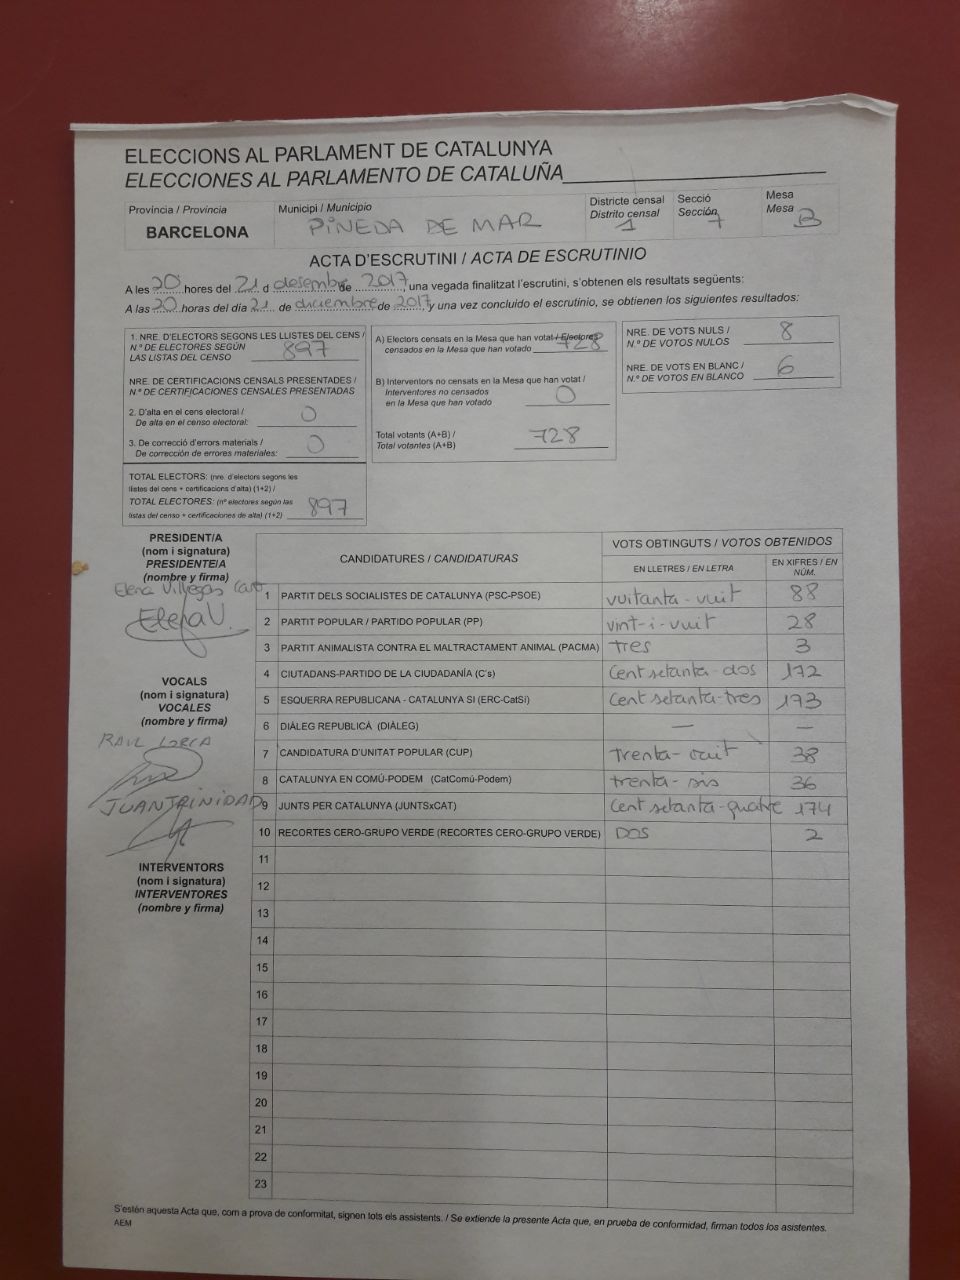 ELECCIONS AL PARLAMENT DE CATALUNYA
ELECCIONES AL PARLAMENTO DE CATALUÑA
Provincia / Provincia
BARCELONA
Municipi / Municipio
PINEDA DE MAR
Districte censal
Distrito censal
1
Secció
Sección
7
Mesa
Mesa
B
ACTA D'ESCRUTINI / ACTA DE ESCRUTINIO
A les 20 hores del 21 d desembre de 2017, una vegada finalitzat l'escrutini, s'obtenen els resultats següents:
A las 20 horas del día 21 de diciembre de 2017, y una vez concluido el escrutinio, se obtienen los siguientes resultados:
1. NRE. D'ELECTORS SEGONS LES LLISTES DEL CENS /
N.º DE ELECTORES SEGÚN
LAS LISTAS DEL CENSO 897
NRE. DE CERTIFICACIONS CENSALS PRESENTADES /
N.º DE CERTIFICACIONES CENSALES PRESENTADAS
2. D'alta en el cens electoral /
De alta en el censo electoral: 0
3. De correcció d'errors materials /
De corrección de errores materiales: 0
TOTAL ELECTORS: (nre. d'electors segons les
llistes del cens + certificacions d'alta) (1+2) /
TOTAL ELECTORES: (nº electores según las
listas del censo + certificaciones de alta) (1+2) 897
A) Electors censats en la Mesa que han votat / Electores
censados en la Mesa que han votado 728
B) Interventors no censats en la Mesa que han votat /
Interventores no censados
en la Mesa que han votado 0
Total votants (A+B) /
Total votantes (A+B) 728
NRE. DE VOTS NULS /
N.º DE VOTOS NULOS 8
NRE. DE VOTS EN BLANC /
N.º DE VOTOS EN BLANCO 6
PRESIDENT/A
(nom i signatura)
PRESIDENTE/A
(nombre y firma)
Elena Villegas
Elena V.
VOCALS
(nom i signatura)
VOCALES
(nombre y firma)
RAUL LORCA
JUAN TRINIDAD
INTERVENTORS
(nom i signatura)
INTERVENTORES
(nombre y firma)
CANDIDATURES / CANDIDATURAS
VOTS OBTINGUTS / VOTOS OBTENIDOS
EN LLETRES / EN LETRA
EN XIFRES / EN
NÚM.
1 PARTIT DELS SOCIALISTES DE CATALUNYA (PSC-PSOE) vuitanta-vuit 88
2 PARTIT POPULAR / PARTIDO POPULAR (PP) vint-i-vuit 28
3 PARTIT ANIMALISTA CONTRA EL MALTRACTAMENT ANIMAL (PACMA) tres 3
4 CIUTADANS-PARTIDO DE LA CIUDADANÍA (C's) Cent setanta-dos 172
5 ESQUERRA REPUBLICANA - CATALUNYA SI (ERC-CatSi) Cent setanta-tres 173
6 DIÀLEG REPUBLICÀ (DIÀLEG) — —
7 CANDIDATURA D'UNITAT POPULAR (CUP) trenta-vuit 38
8 CATALUNYA EN COMÚ-PODEM (CatComú-Podem) trenta-sis 36
9 JUNTS PER CATALUNYA (JUNTSxCAT) Cent setanta-quatre 174
10 RECORTES CERO-GRUPO VERDE (RECORTES CERO-GRUPO VERDE) DOS 2
11
12
13
14
15
16
17
18
19
20
21
22
23
S'estén aquesta Acta que, com a prova de conformitat, signen tots els assistents. / Se extiende la presente Acta que, en prueba de conformidad, firman todos los asistentes.
AEM